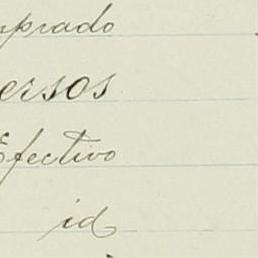 mprado
ersos
Efectivo
id